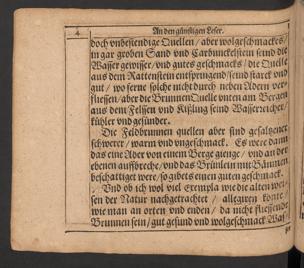 4 An den günstigen Leser.
doch vnbestendige Quellen / aber wolgeschmackts /
in gar groben Sand vnd Carbunckelstein seind die
Wasser gewisser / vnd gutes geschmacks / die Quelle
aus dem Rattenstein entspringend / seind starck vnd
gut / wo ferne solche nicht durch neben Adern ver
fliessen / aber die Brunnen Quelle vnten am Bergen
aus dem Felssen vnd Kißling seind Wasserreicher /
kühler vnd gesünder.
Die Feldbrunnen quellen aber sind gesaltzener
schwerer / warm vnd vngeschmack. Es were dann
das eine Ader von einem Berge gienge / vnd an der
ebenen auffbreche / vnd das Brünlein mit Bäumen
beschattiget were / so gibets einen guten geschmack.
Vnd ob ich wol viel exempla wie die alten wei-
sen der Natur nachgetrachtet / allegiren könte /
wie man an orten vnd enden / da nicht fliessende
Brunnen sein / gut gesund vnd wolgeschmack Was-